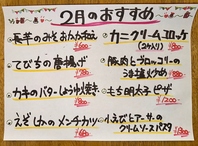 2月のおすすめ
長芋のみそおかか和え
¥600
てびちの唐揚げ
¥780
カキのバターしょうゆ焼き
¥980
えぞしかのメンチカツ
カニクリームコロッケ
(2ヶ入り) ¥880
豚肉とブロッコリーの
塩塩火炒め
¥880
もち明太子ピザ
¥1200
小えびとアサリの
クリームソースパスタ